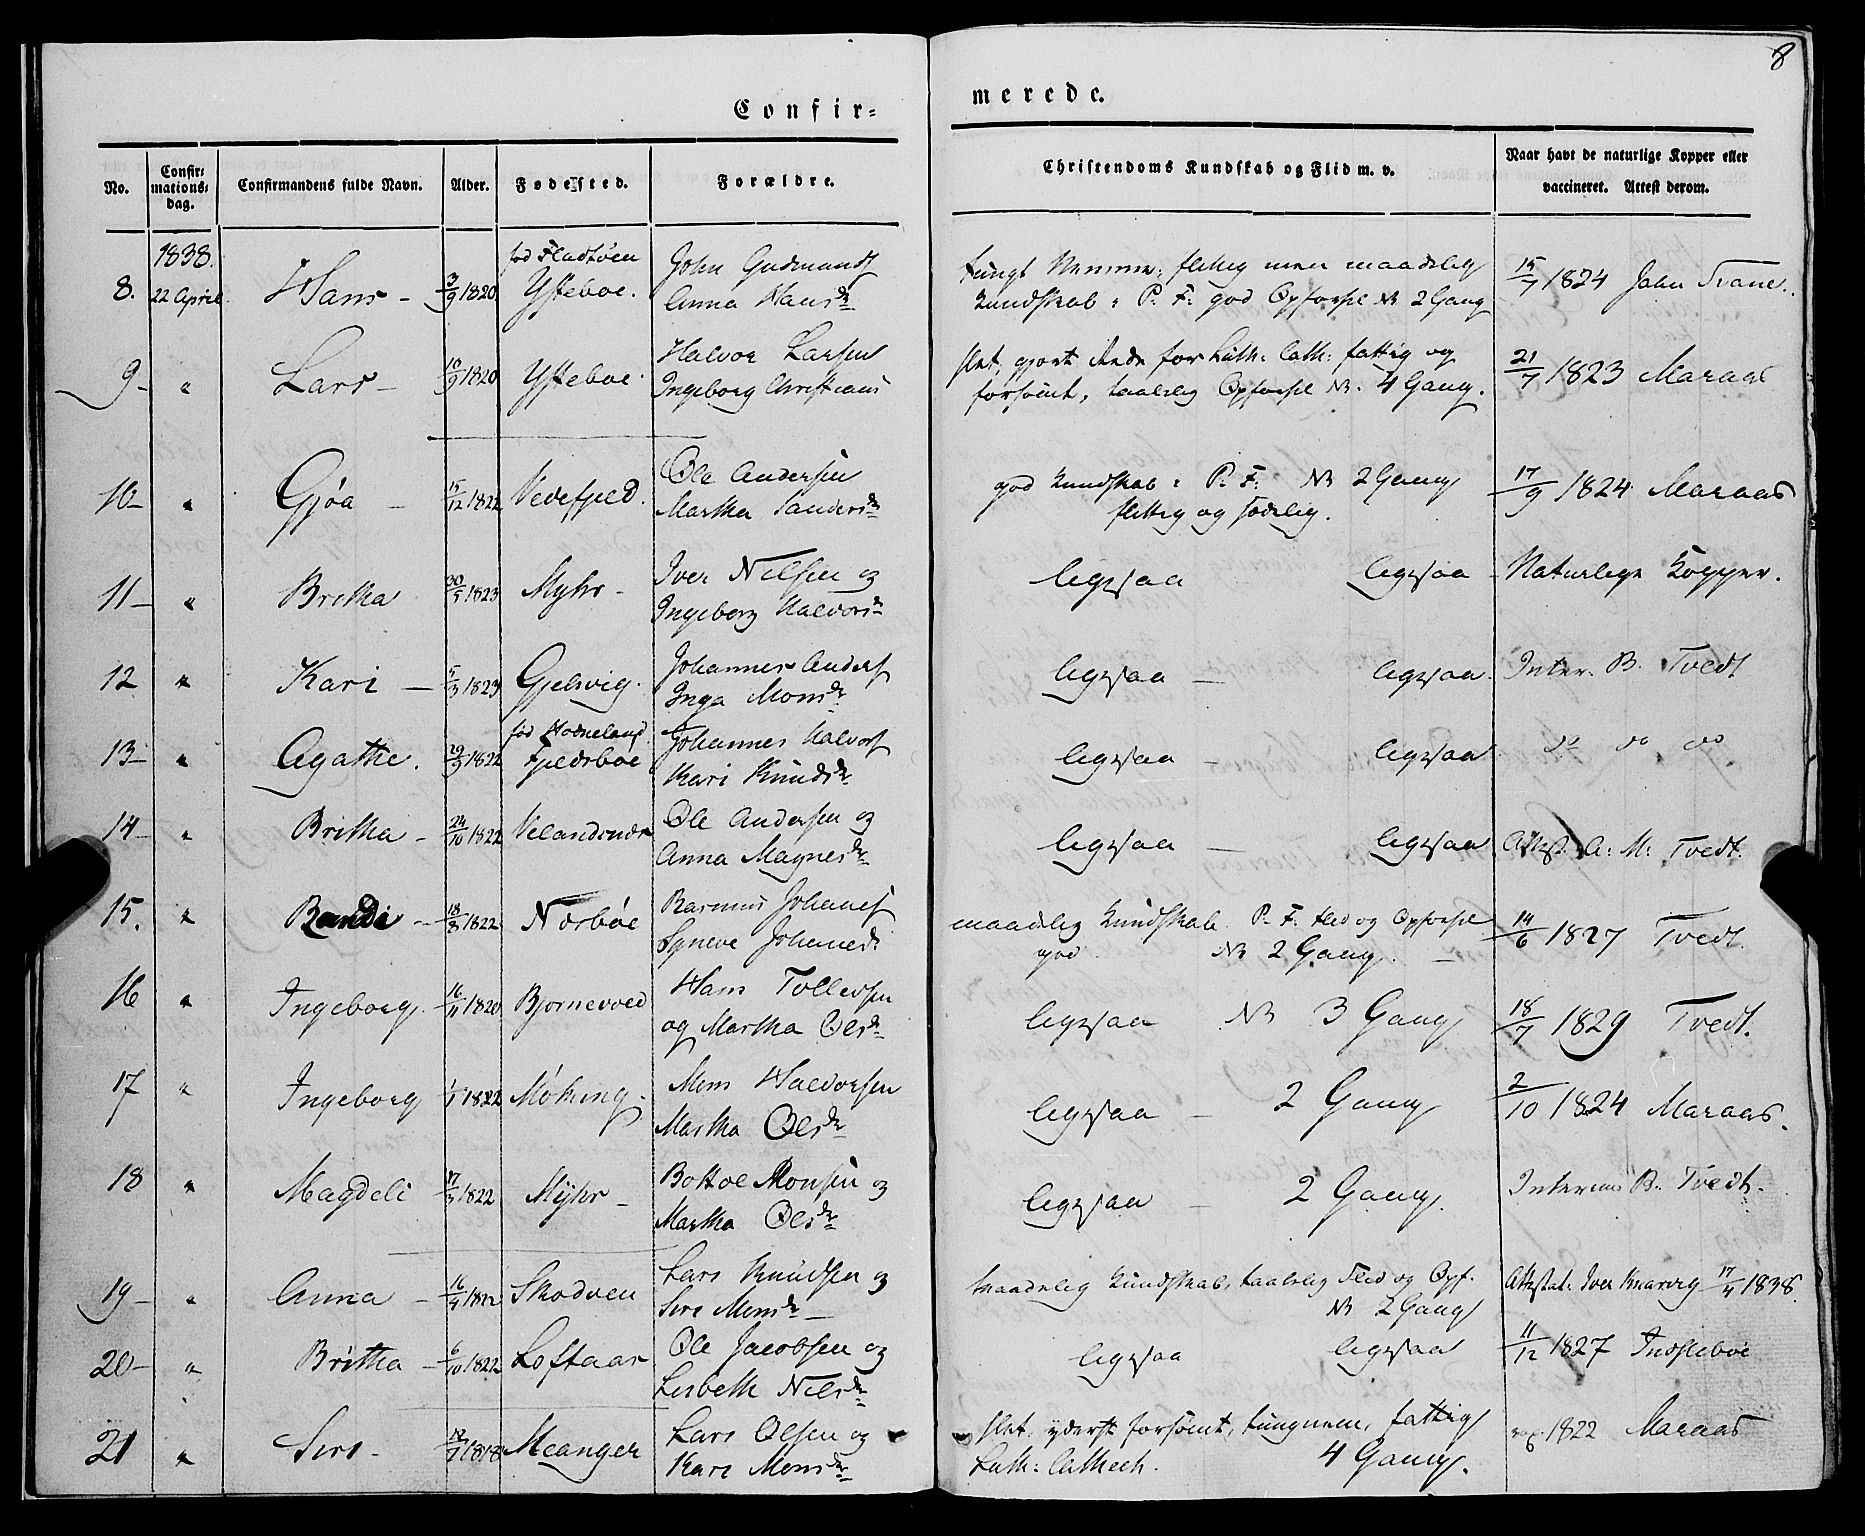 8
Confir- merede.
No. Confir- mations- dag. Confirmandens fulde Navn. Alder. Fødested. Forældre. Christendoms Kundskab og Flid m. v. Naar havt de naturlige Kopper eller vaccineret. Attest derom.
1838.
8. 22 April Hans - 3/9 1820 fød Fladtøen Ysteboe. John Gudmunds Anna Hansdr tungt Nemme, flittig men maadelig Kundskab: P. F: god Opførsel NB 2 Gang 15/7 1824 John Trane.
9 - " Lars - 10/9 1820 Ysteboe. Halvor Larsen Ingeborg Christians slet, gjort Rede for Luth: Cath: fattig og forsømt, taalelig Opførsel NB. 4 Gang. 21/7 1823 Maraas
10 - " Gjøa - 15/12 1822 Vedefjeld. Ole Andersen Martha Sandersdr god Kundskab: P. F: NB 2 Gang flittig og sædelig. 17/9 1824 Maraas
11 - " Britha 30/5 1823 Myhr - Iver Nilsen og Ingeborg Halvorsdr ligesaa ligesaa - Naturlige Kopper.
12 " Kari - 5/3 1823 Gjelsvig. Johannes Anders Inga Monsdr ligesaa - ligesaa. Interims B. Tvedt
13 - " Agathe. 29/9 1822 fød Hodneland Fjeldsboe Johannes Halvors Kari Knudsdr ligesaa - ligesaa do do do
14 - " Britha - 24/10 1822 Velandsnæs Ole Andersen og Anna Magnesdr ligesaa - ligesaa Attest. A: M: Tvedt.
15. " Randi - 18/8 1822 Norbøe Rasmus Johanes Syneve Johanesd: maadelig Kundskab P. F. Flid og Opførsel god. NB 2 Gang. - 14/6 1827 Tvedt.
16 " Ingeborg. 16/11 1820 Bjornevoed Hans Tollevsen og Martha Olsdr ligesaa NB 3 Gang 18/7 1829 Tvedt.
17 " Ingeborg 1/1 1822 Møking. Mons Halvorsen Martha Olsdr ligesaa - 2 Gang 2/10 1824 Maraas.
18 " Magdeli 17/3 1822 Myhr - Botolv Monsen og Martha Olsdr ligesaa - 2 Gang. Interims B. Tvedt.
19 - " Anna - 16/4 1822 Skodven Lars Knudsen og Siri Monsdr - Maadelig Kundskab, taalelig Flid og Opf. NB 2 Gang Attestat: Iver Knarvig 17/4 1838.
20 - " Britha - 6/10 1822 Loftaas Ole Jacobsen og Lisbeth Nilsdr ligesaa ligesaa 11/12 1827 Indstebøe
21 " Siri - 12/7 1818 Meanger Lars Olsen og Kari Monsdr slet, yderst forsømt, tungnem, fattig Luth: Cathech. 4 Gang. 1822 Maraas